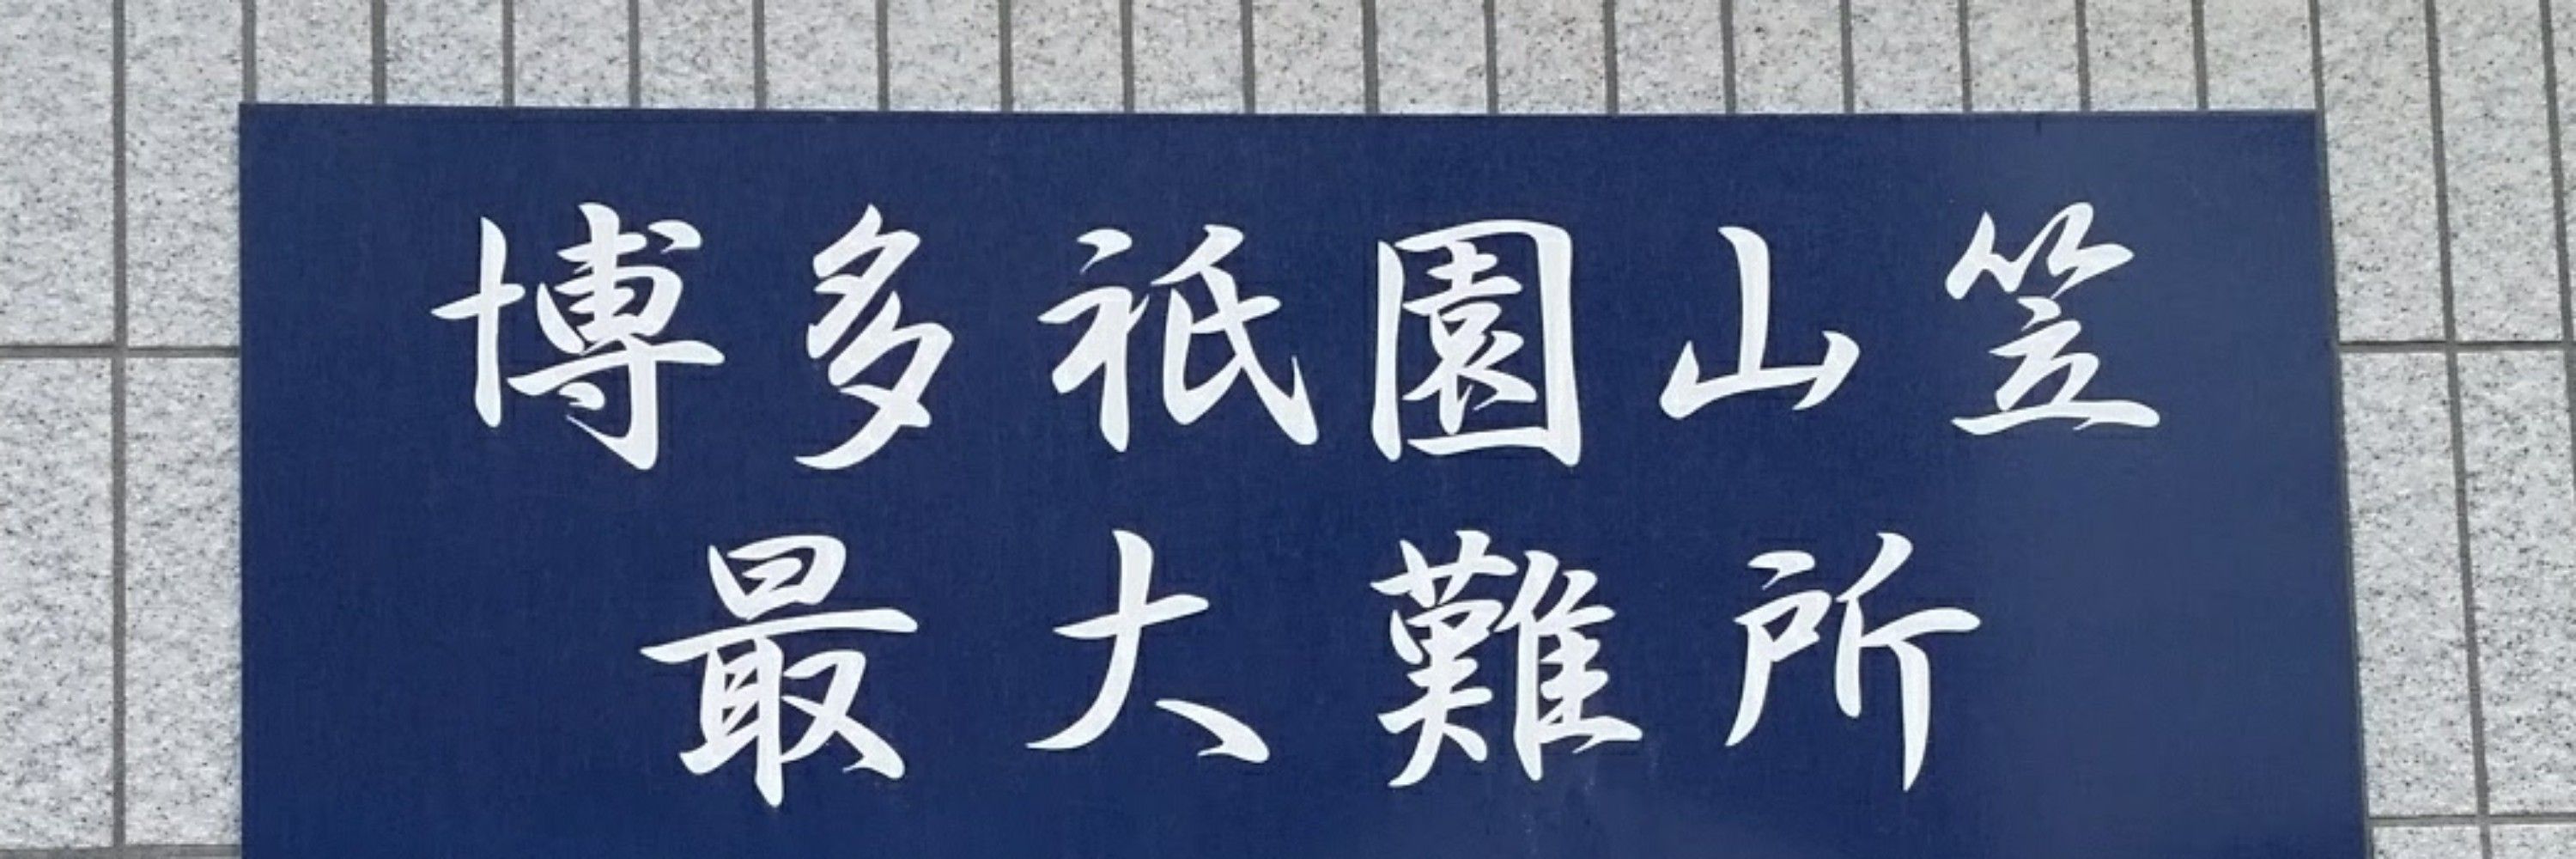 博多祇園山笠
最大難所